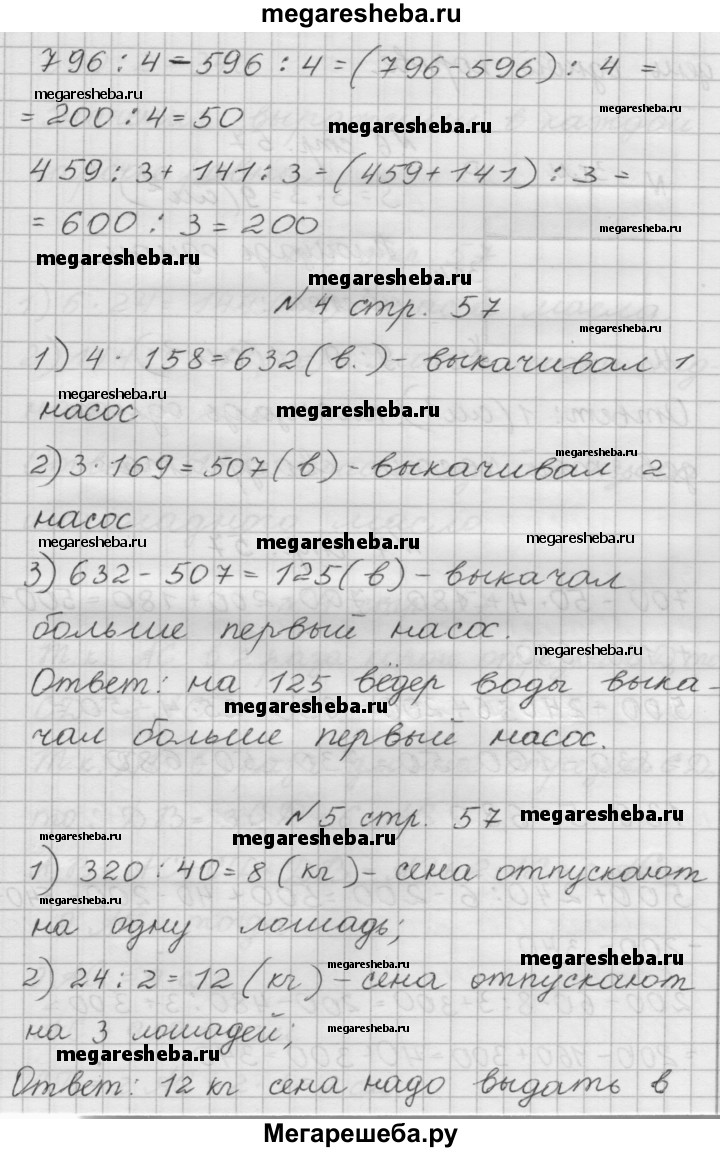 megaresheba.ru
796 : 4 - 596 : 4 = (796 - 596) : 4 =
megaresheba.ru
megaresheba.ru
= 200 : 4 = 50
megaresheba.ru
459 : 3 + 141 : 3 = (459 + 141) : 3 =
= 600 : 3 = 200
megaresheba.ru
megaresheba.ru
megaresheba.ru
N 4 стр. 57
megaresheba.ru
1) 4 · 158 = 632 (в.) - выкачивал 1
megaresheba.ru
насос
megaresheba.ru
megaresheba.ru
2) 3 · 169 = 507 (в) - выкачивал 2
насос
megaresheba.ru
megaresheba.ru
megaresheba.ru
3) 632 - 507 = 125 (в) - выкачал
больше первый насос.
megaresheba.ru
Ответ: на 125 вёдер воды выка-
megaresheba.ru
чал больше первый насос.
N 5 стр. 57
megaresheba.ru
megaresheba.ru
megaresheba.ru
1) 320 : 40 = 8 (кг) - сена отпускают
megaresheba.ru
megaresheba.ru
на одну лошадь;
megaresheba.ru
megaresheba.ru
2) 24 : 2 = 12 (кг) - сена отпускают
на 3 лошадей;
megaresheba.ru
megaresheba.ru
Ответ: 12 кг сена надо выдать в
Мегарешеба.ру